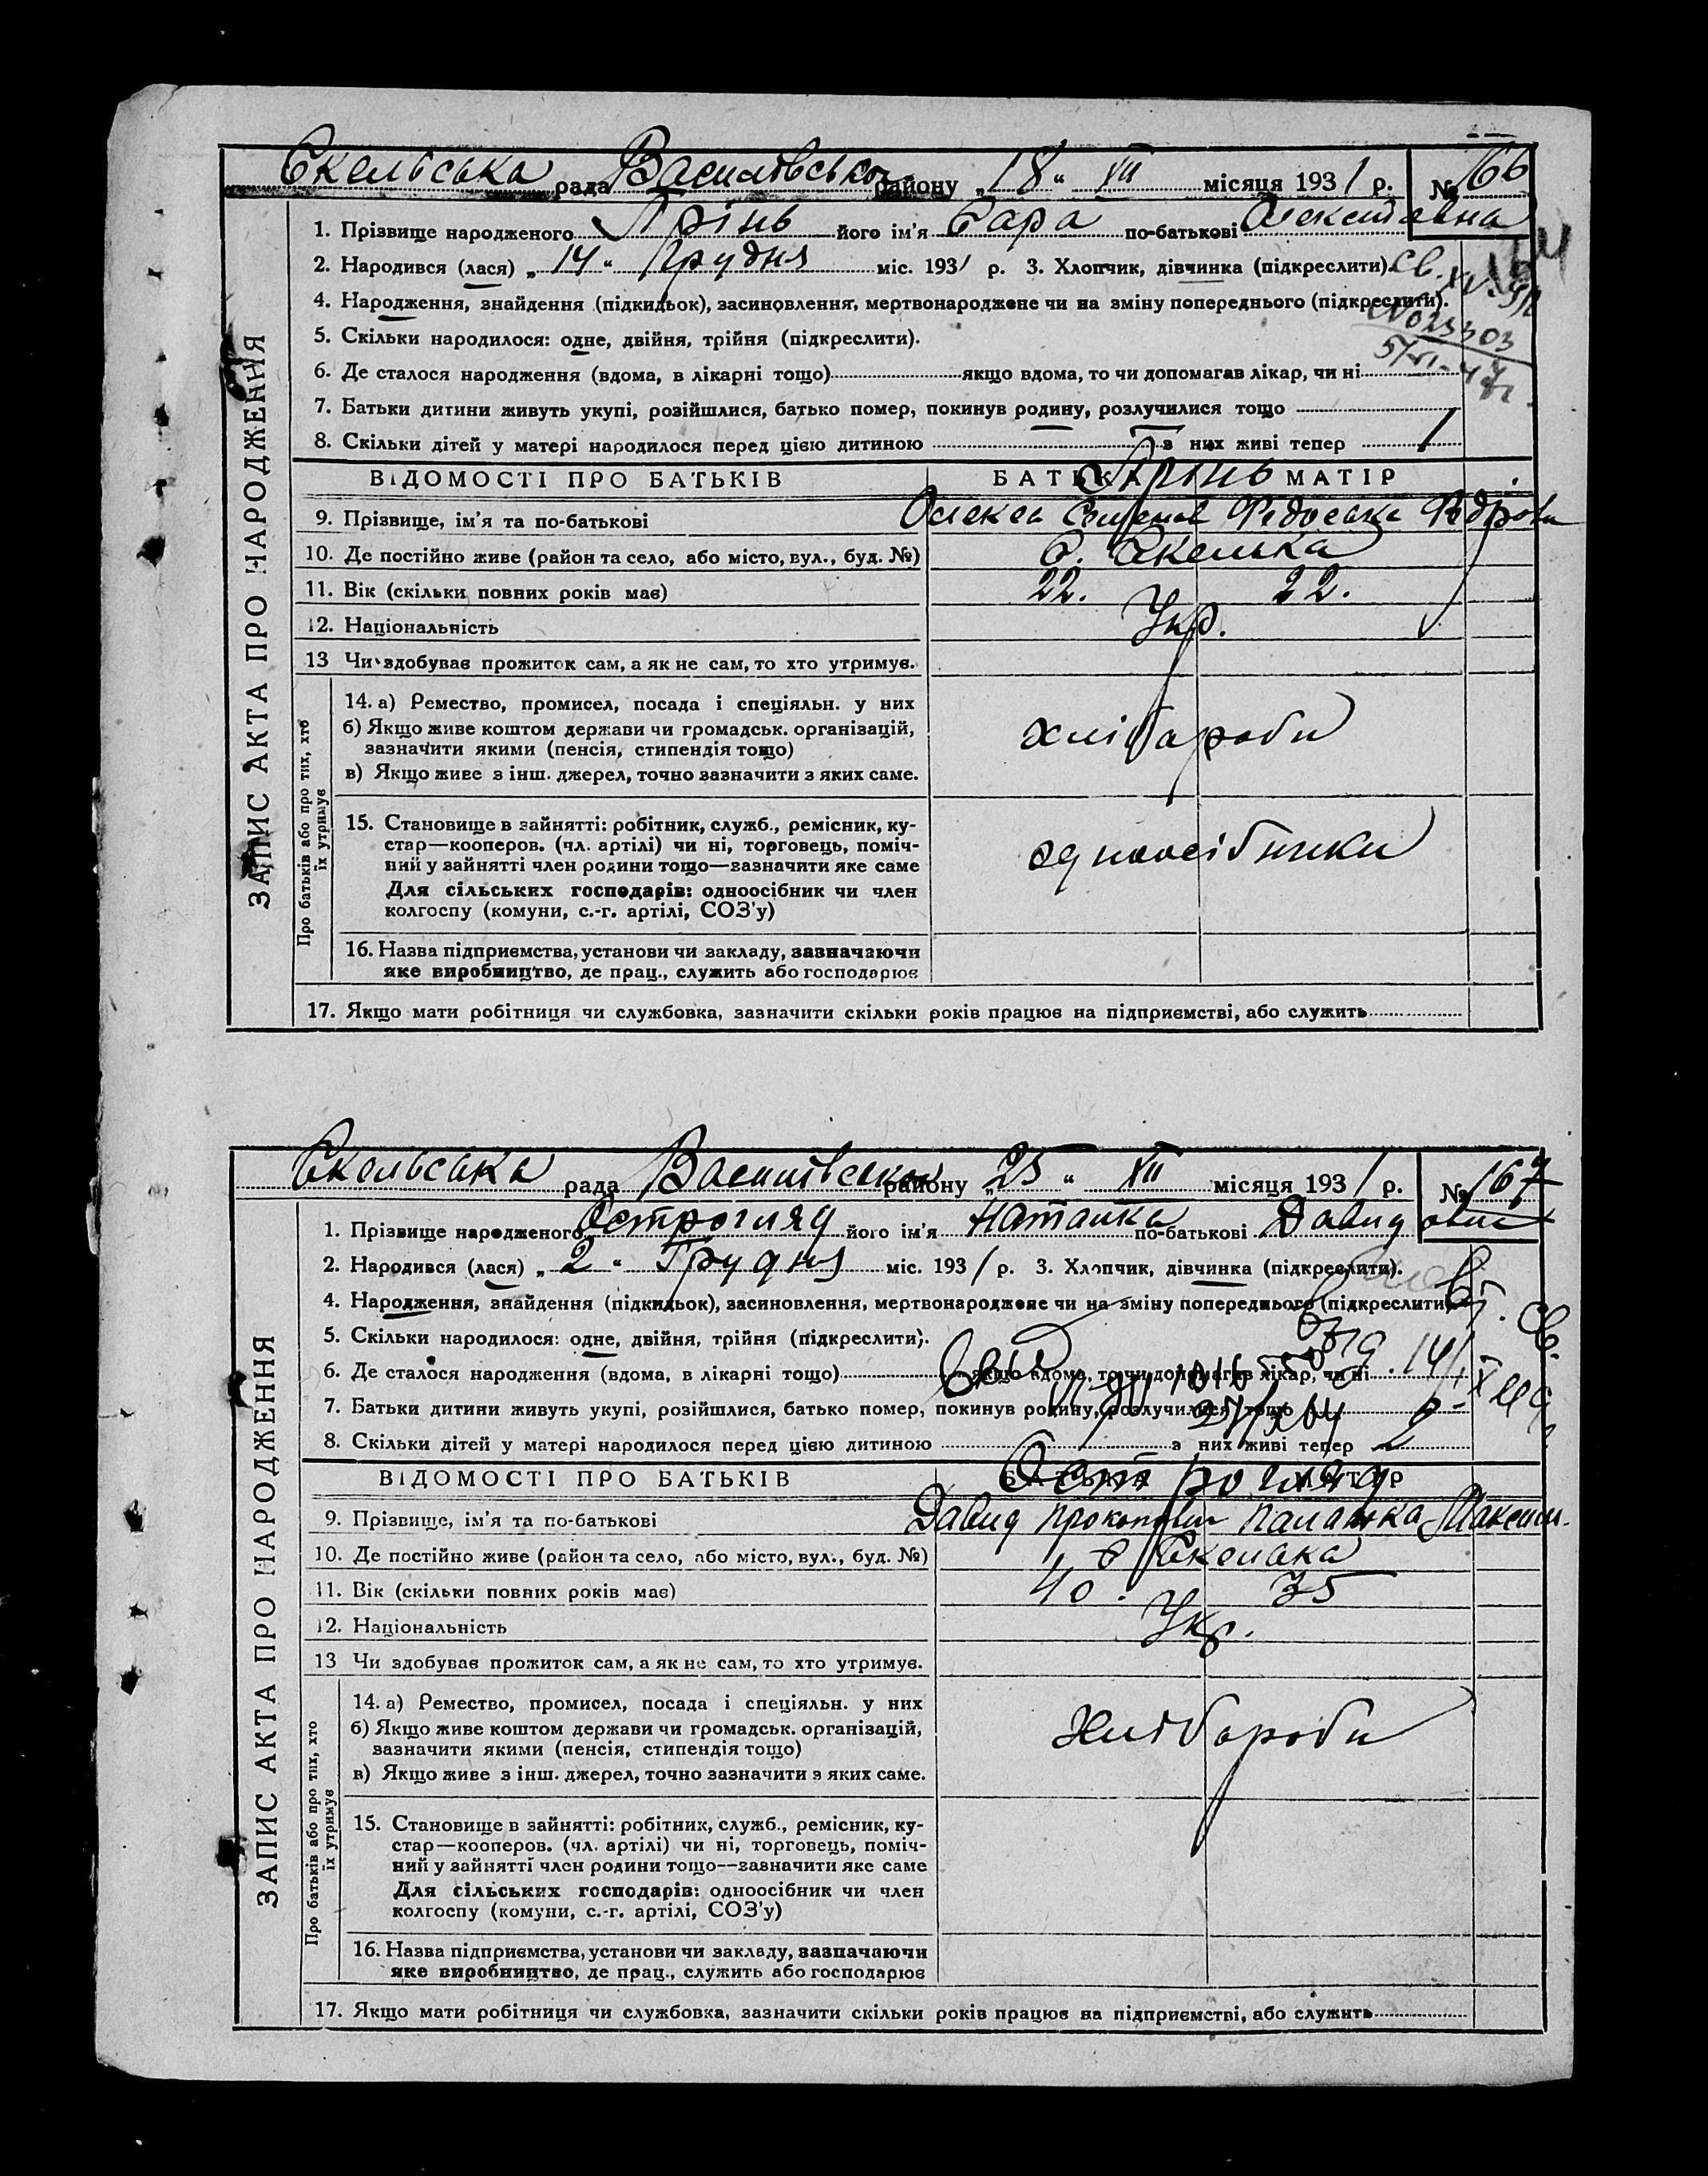 Скельська рада Василівського району „18“ XII місяця 1931 р. № 166
1. Прізвище народженого Прінь його ім'я Сара по-батькові Олексіівна
2. Народився (лася) „14“ Грудня міс. 1931 р. 3. Хлопчик, дівчинка (підкреслити).
4. Народження, знайдення (підкидьок), засиновлення, мертвонароджене чи на зміну попереднього (підкреслити).
5. Скільки народилося: одне, двійня, трійня (підкреслити).
6. Де сталося народження (вдома, в лікарні тощо) якщо вдома, то чи допомагав лікар, чи ні
7. Батьки дитини живуть укупі, розійшлися, батько помер, покинув родину, розлучилися тощо
8. Скільки дітей у матері народилося перед цією дитиною з них живі тепер 1
ВІДОМОСТІ ПРО БАТЬКІВ БАТЬКА МАТІР
Прінь
9. Прізвище, ім'я та по-батькові Олекса Федоська
10. Де постійно живе (район та село, або місто, вул., буд. №) С. Скелька
11. Вік (скільки повних років має) 22. 22.
12. Національність Укр.
13 Чи здобував прожиток сам, а як не сам, то хто утримує.
14. а) Ремество, промисел, посада і спеціяльн. у них
б) Якщо живе коштом держави чи громадськ. організацій,
зазначити якими (пенсія, стипендія тощо)
хлібароби
в) Якщо живе з інш. джерел, точно зазначити з яких саме.
15. Становище в зайнятті: робітник, служб., ремісник, ку-
стар—кооперов. (чл. артілі) чи ні, торговець, поміч-
ний у зайнятті член родини тощо—зазначити яке саме
одноосібники
Для сільських господарів: одноосібник чи член
колгоспу (комуни, с.-г. артілі, СОЗ'у)
16. Назва підприємства, установи чи закладу, зазначаючи
яке виробництво, де прац., служить або господарює
17. Якщо мати робітниця чи службовка, зазначити скільки років працює на підприємстві, або служить
ЗАПИС АКТА ПРО НАРОДЖЕННЯ
Про батьків або про тих, хто
їх утримує
Скельська рада Василівського району „25“ XII місяця 1931 р. № 167
1. Прізвище народженого Острогляд його ім'я Наталка по-батькові Давидовна
2. Народився (лася) „2“ Грудня міс. 1931 р. 3. Хлопчик, дівчинка (підкреслити).
4. Народження, знайдення (підкидьок), засиновлення, мертвонароджене чи на зміну попереднього (підкреслити)
5. Скільки народилося: одне, двійня, трійня (підкреслити).
6. Де сталося народження (вдома, в лікарні тощо) якщо вдома, то чи допомагав лікар, чи ні
7. Батьки дитини живуть укупі, розійшлися, батько помер, покинув родину, розлучилися тощо
8. Скільки дітей у матері народилося перед цією дитиною з них живі тепер 2
ВІДОМОСТІ ПРО БАТЬКІВ БАТЬКА МАТІР
Острогляд
9. Прізвище, ім'я та по-батькові Давид Прокопович Палажка Максим.
10. Де постійно живе (район та село, або місто, вул., буд. №) С Скелька
11. Вік (скільки повних років має) 40. 35
12. Національність Укр.
13 Чи здобував прожиток сам, а як не сам, то хто утримує.
14. а) Ремество, промисел, посада і спеціяльн. у них
б) Якщо живе коштом держави чи громадськ. організацій,
зазначити якими (пенсія, стипендія тощо)
хлібороби
в) Якщо живе з інш. джерел, точно зазначити з яких саме.
15. Становище в зайнятті: робітник, служб., ремісник, ку-
стар—кооперов. (чл. артілі) чи ні, торговець, поміч-
ний у зайнятті член родини тощо—зазначити яке саме
Для сільських господарів: одноосібник чи член
колгоспу (комуни, с.-г. артілі, СОЗ'у)
16. Назва підприємства, установи чи закладу, зазначаючи
яке виробництво, де прац., служить або господарює
17. Якщо мати робітниця чи службовка, зазначити скільки років працює на підприємстві, або служить
ЗАПИС АКТА ПРО НАРОДЖЕННЯ
Про батьків або про тих, хто
їх утримує